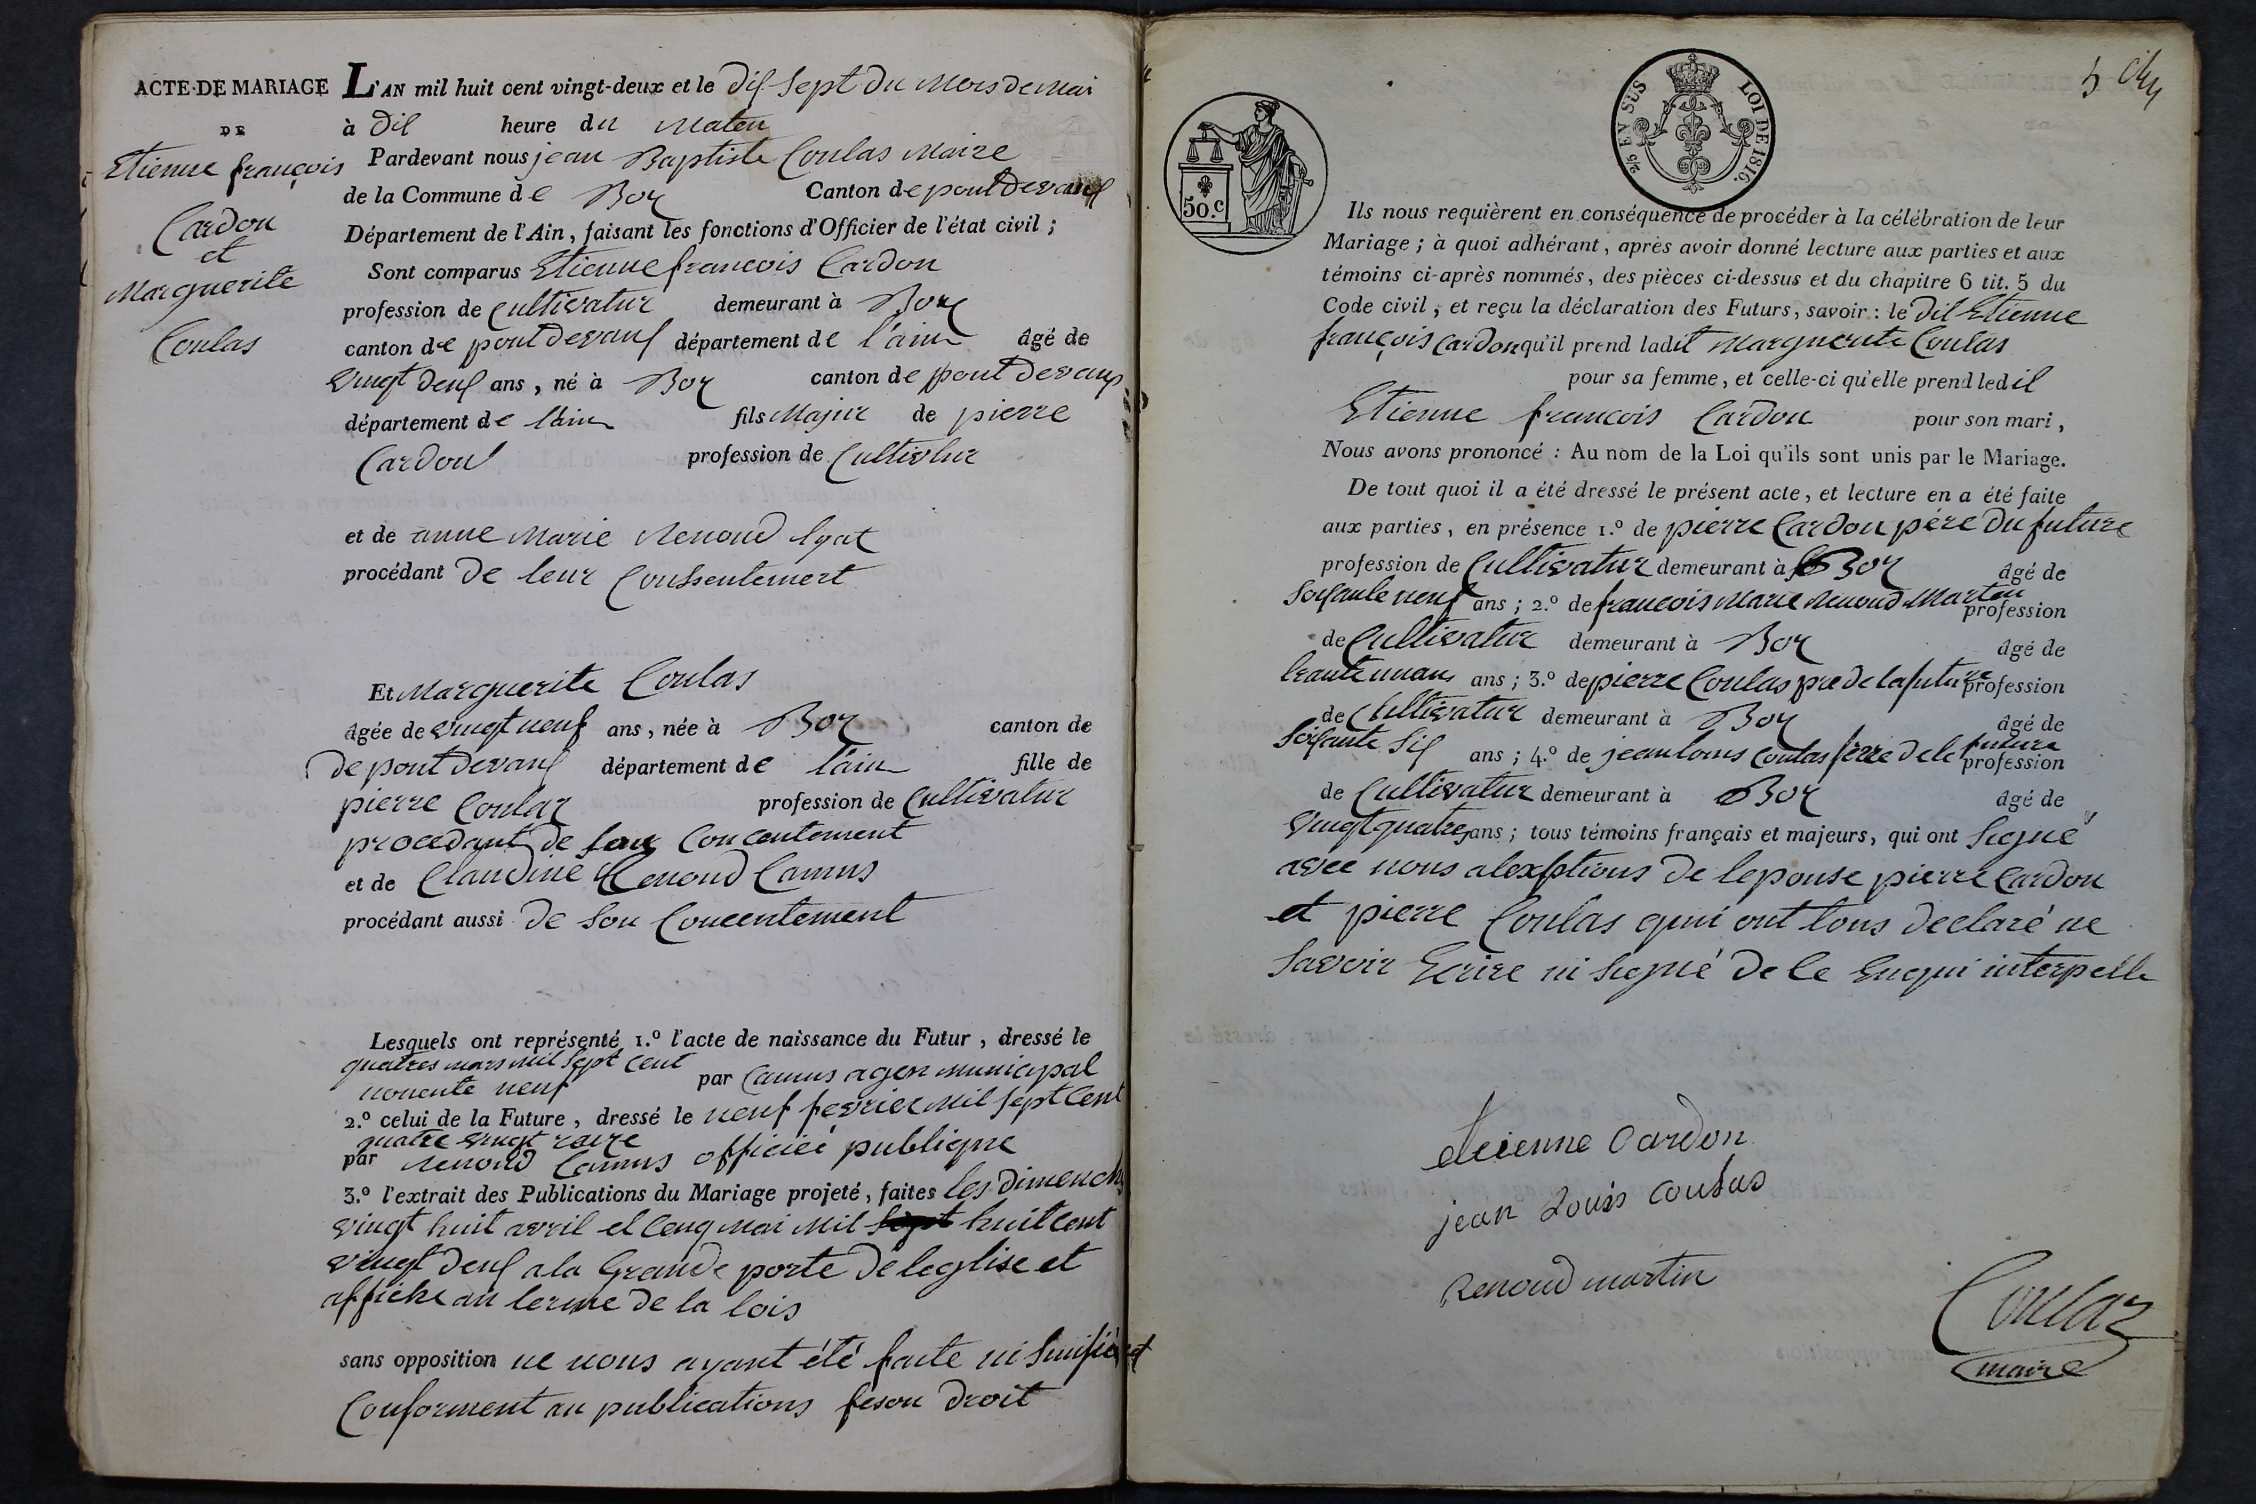 ACTE DE MARIAGE
DE
Etienne françois
Cardon
et
Marguerite
Coulas
L'AN mil huit cent vingt-deux et le dix Sept du Mois de Mai
à dix heure du Maten
Pardevant nous jean Baptiste Coulas Maire
de la Commune de Boz Canton de pont Devaux
Département de l'Ain, faisant les fonctions d'Officier de l'état civil ;
Sont comparus Etienne francois Cardon
profession de Cultivatur demeurant à Boz
canton de pont Devaux département de l'ain âgé de
vingt deux ans, né à Boz canton de pont Devaux
département de l'ain fils Majur de pierre
Cardon profession de Cultivtur
et de anne Marie Renoud lyat
procédant De leur Conssentement
Et Marguerite Coulas
âgée de vingt neuf ans, née à Boz canton de
De pont Devaux département de l'ain fille de
pierre Coulaz profession de Cultivatur
procedant De son Concentement
et de Claudine Renoud Camus
procédant aussi De Son Concentement
Lesquels ont représenté 1.º l'acte de naissance du Futur, dressé le
quatres mars mil Sept Cent
nonente neuf par Camus agen municipal
2.º celui de la Future, dressé le neuf fevrier Mil Sept Cent
quatre vingt
par Renoud Camus officiée publique
3.º l'extrait des Publications du Mariage projeté, faites les Dimench
vingt huit avril et Cenq Mai Mil huit Cent
vingt Deux a la Grande porte De leglise et
affiche au terme De la lois
sans opposition ne nous ayant été faite ni Sinifié et
Conforment au publications feson Droit
5 Cinq
50.c
2/5 EN SUS LOI DE 1816.
Ils nous requièrent en conséquence de procéder à la célébration de leur
Mariage ; à quoi adhérant, après avoir donné lecture aux parties et aux
témoins ci-après nommés, des pièces ci-dessus et du chapitre 6 tit. 5 du
Code civil, et reçu la déclaration des Futurs, savoir : le dit Etienne
françois Cardon qu'il prend ladit Marguerite Coulas
pour sa femme, et celle-ci qu'elle prend ledit
Etienne francois Cardon pour son mari,
Nous avons prononcé : Au nom de la Loi qu'ils sont unis par le Mariage.
De tout quoi il a été dressé le présent acte, et lecture en a été faite
aux parties, en présence 1.º de pierre Cardon pére Du future
profession de Cultivatur demeurant à Boz âgé de
Soixante neuf ans ; 2.º de francois Marie Renoud Marten profession
de Cultivatur demeurant à Boz âgé de
trante unans ans ; 3.º de pierre Coulas pre de la future profession
de Cultivatur demeurant à Boz âgé de
Soixante Six ans ; 4.º de jean louis Coulas frere De la future profession
de Cultivatur demeurant à Boz âgé de
Vingt quatre ans ; tous témoins français et majeurs, qui ont Signé
avec nous alexsptions De lepouse pierre Cardon
et pierre Coulas qui ont tous declaré ne
Savoir Ecrire ni Signé De ce Enqui interpelle
etcienne Cardon
jean Louis coulas
Renoud martin
Coulaz
maire